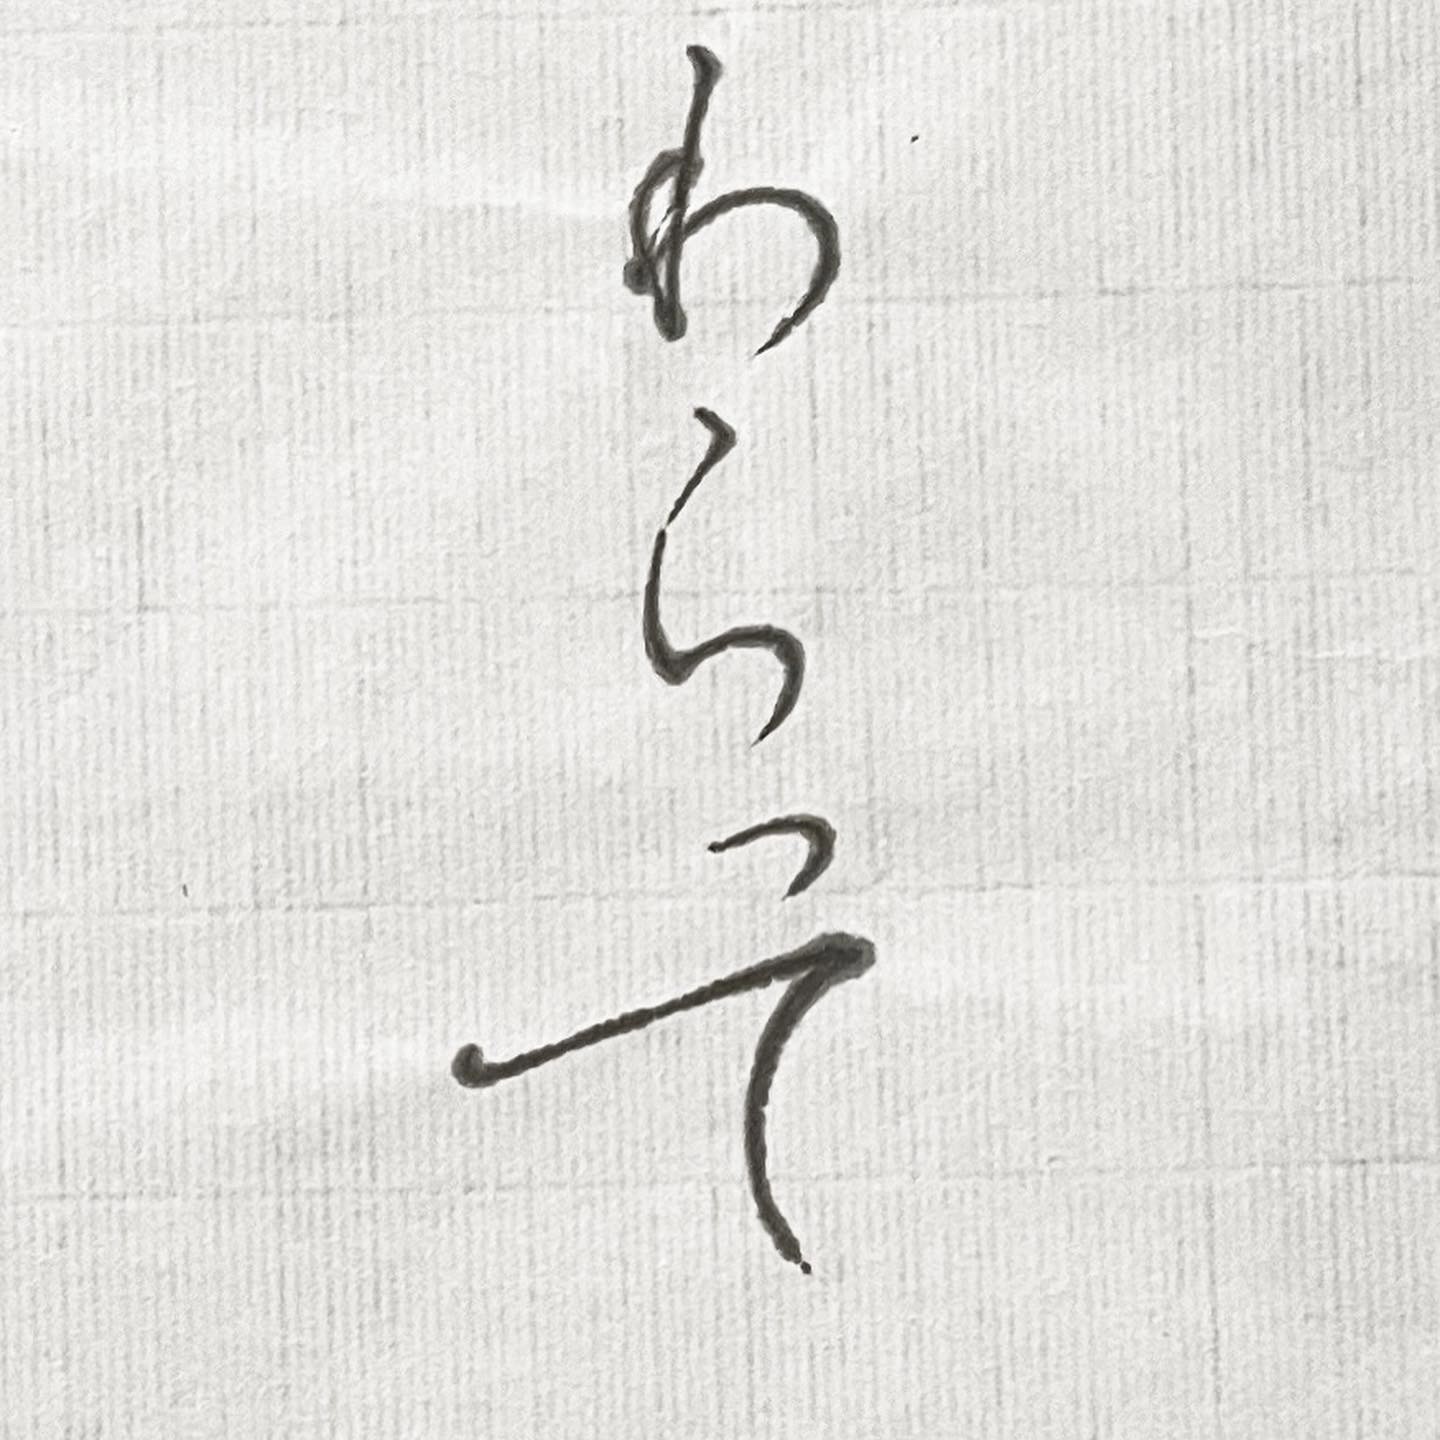 わらって